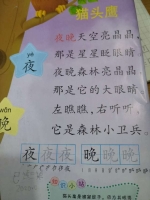 猫头鹰
夜晚天空亮晶晶
那是星星眨眼睛
夜晚森林亮晶晶
那是它的大眼睛
左瞧瞧，右听听，
它是森林小卫兵
yè
夜
wǎn
晚
夜夜夜 晚晚晚